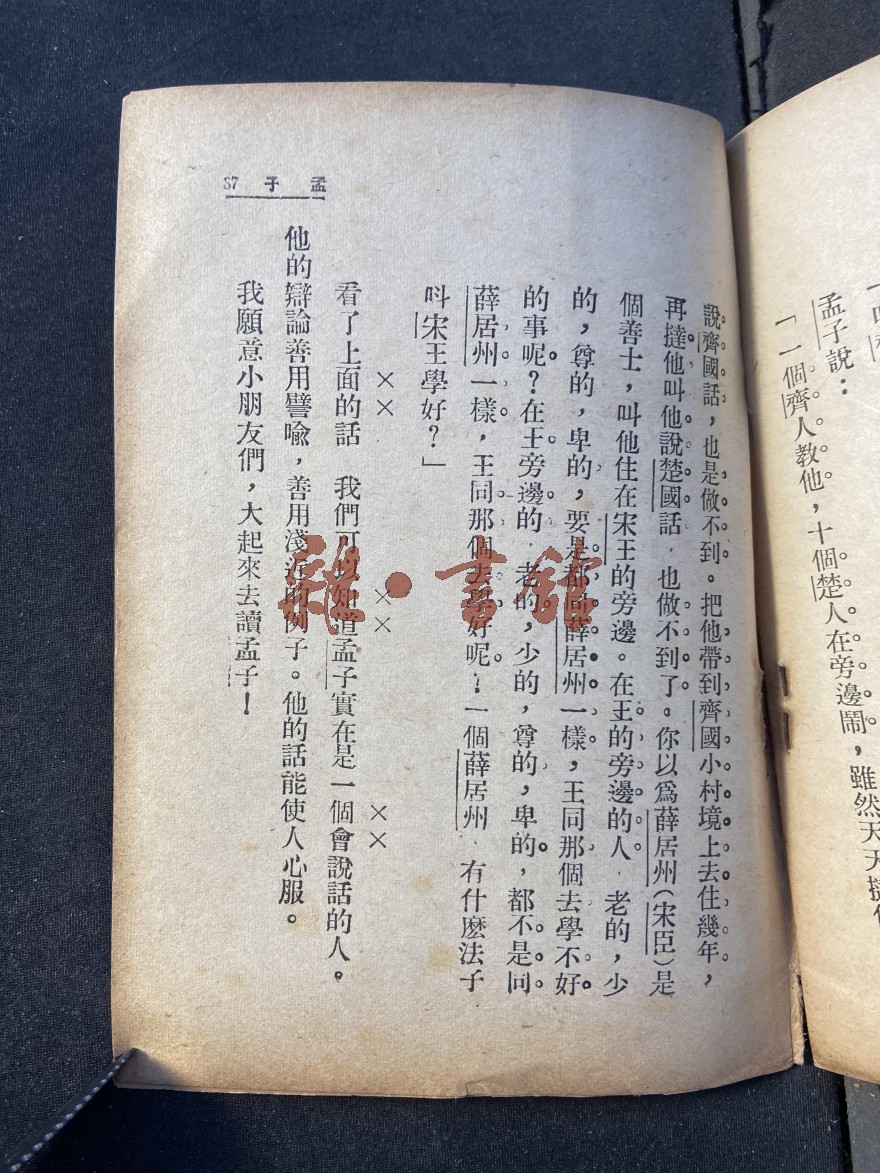 孟子說：
「一個齊人教他，十個楚人在旁邊鬧，雖然天天撻
說齊國話，也是做不到。把他帶到齊國小村境上去住幾年，
再撻他叫他說楚國話，也做不到了。你以爲薛居州(宋臣)是
個善士，叫他住在宋王的旁邊。在王的旁邊的人，老的，少
的，尊的，卑的，要是都同薛居州一樣，王同那個去學不好
的事呢？在王旁邊的，老的，少的，尊的，卑的，都不是同
薛居州一樣，王同那個去學好呢？一個薛居州，有什麽法子
叫宋王學好？」
×× ×× ××
看了上面的話 我們可以知道孟子實在是一個會說話的人。
他的辯論善用譬喻，善用淺近的例子。他的話能使人心服。
我願意小朋友們，大起來去讀孟子！
孟子
雜·書館